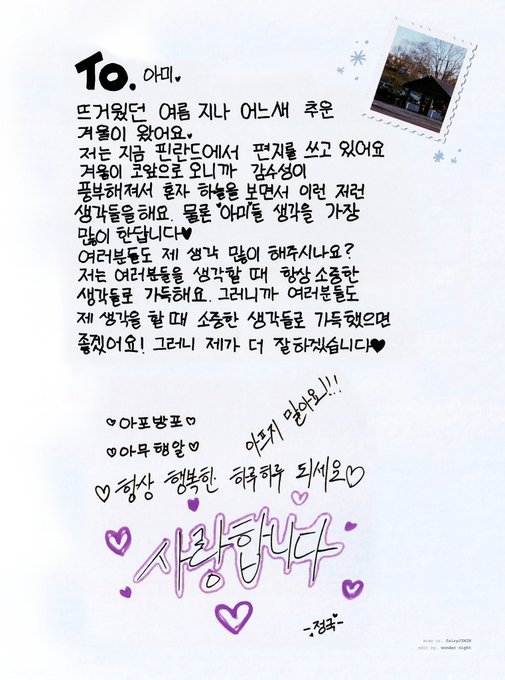 TO. 아미♥
뜨거웠던 여름 지나 어느새 추운
겨울이 왔어요♥
저는 지금 핀란드에서 편지를 쓰고 있어요
겨울이 코앞으로 오니까 감수성이
풍부해져서 혼자 하늘을 보면서 이런 저런
생각들을해요. 물론 "아미"들 생각을 가장
많이 한답니다♥
여러분들도 제 생각 많이 해주시나요?
저는 여러분들을 생각할 때 항상 소중한
생각들로 가득해요. 그러니까 여러분들도
제 생각을 할 때 소중한 생각들로 가득했으면
좋겠어요! 그러니 제가 더 잘하겠습니다♥
♡아포방포♡
아프지 말아요!!!
♡아무행알♡
♡항상 행복한 하루하루 되세요♡
사랑합니다
-정국-
scan by. fairyJIMIN
edit by. wonder night